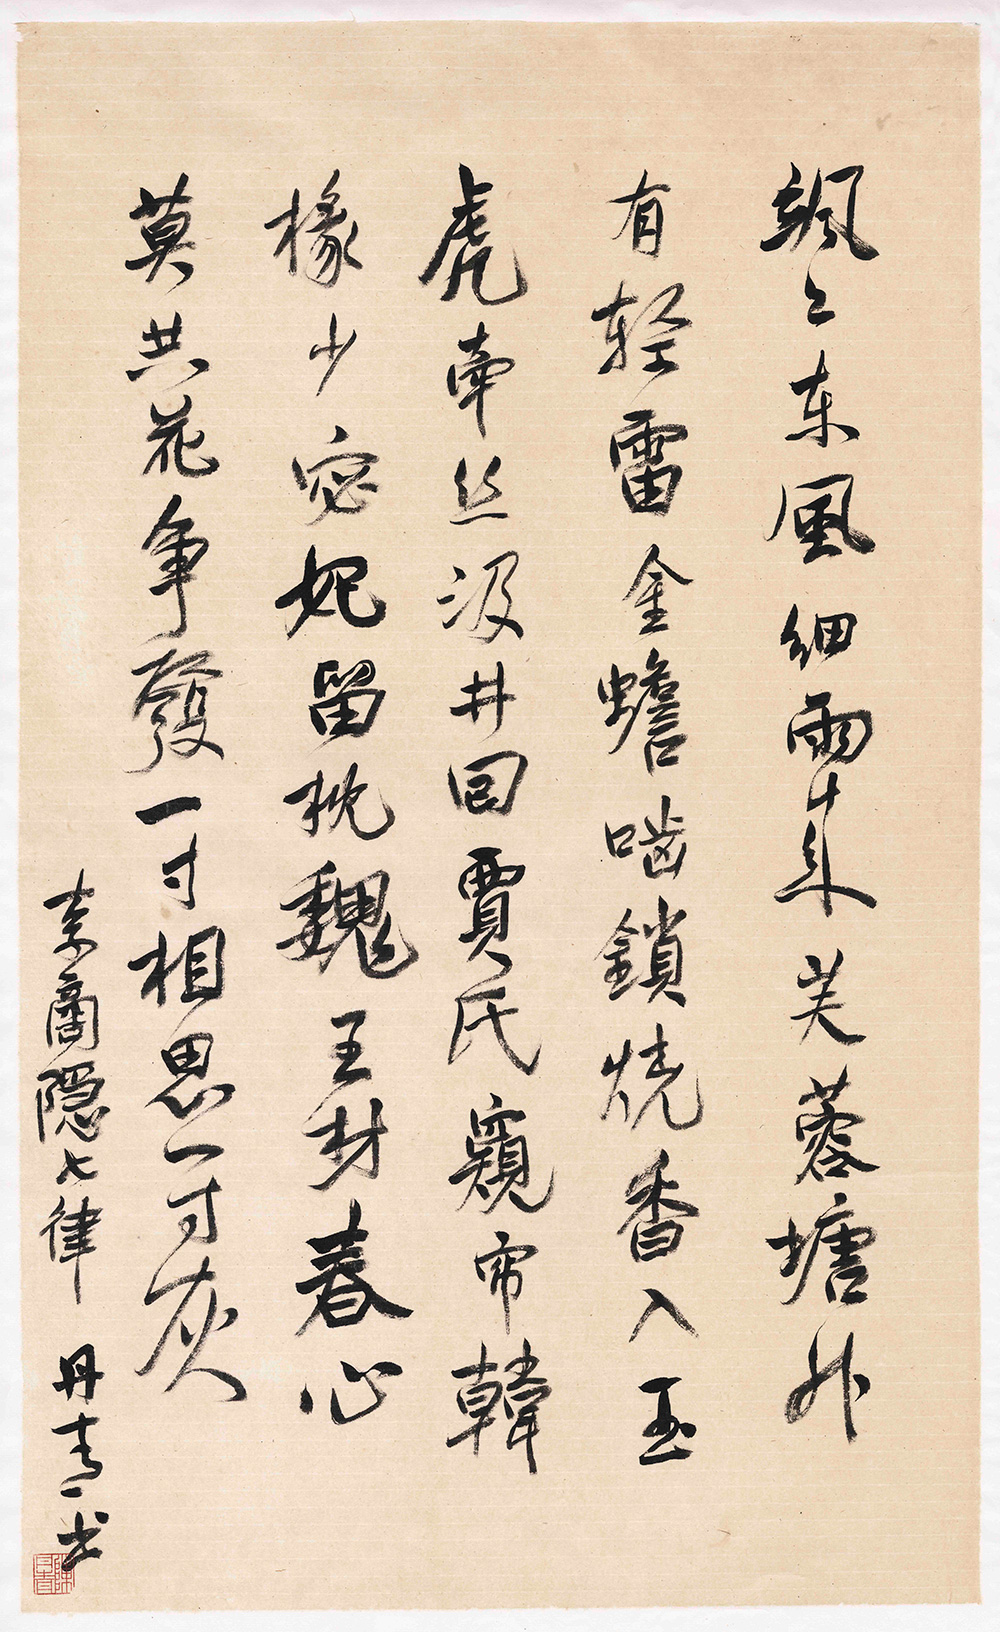 颯々东風細雨来芙蓉塘外
有轻雷金蟾啮鎖烧香入玉
虎牵丝汲井回賈氏窺帘韓
椽少宓妃留枕魏王材春心
莫共花争發一寸相思一寸灰
李商隐七律 丹青书
陳丹青